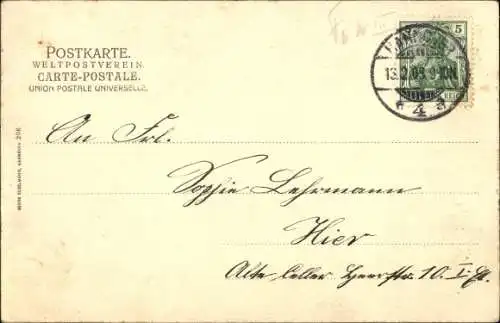 POSTKARTE.
WELTPOSTVEREIN.
CARTE-POSTALE.
UNION POSTALE UNIVERSELLE.
5
13.2.05
4
An Frl.
Sophie Lehrmann
Hier
Alte Celler Heerstr. 10. I. Et.